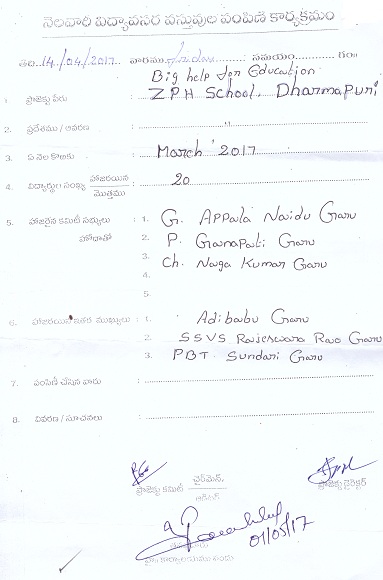 నెలవారి విద్యావసర వస్తువుల పంపిణి కార్యక్రమం
తేది 14/04/2017 వారము Friday సమయం గం॥
Big help for Education
1. ప్రాజెక్టు పేరు : ZPH School, Dharmapuri
2. ప్రదేశము / ఆవరణ : "
3. ఏ నెల కొఱకు : March 2017
4. విద్యార్థుల సంఖ్య హాజరయిన / మొత్తము : 20
5. హాజరైన కమిటీ సభ్యులు : 1. G. Appala Naidu Garu
హోదాతో 2. P. Ganapati Garu
3. Ch. Naga Kumar Garu
4.
5.
6. హాజరయిన ఇతర ముఖ్యులు : 1. Adibabu Garu
2. SSVS Rajeswara Rao Garu
3. PBT. Sundari Garu
7. పంపిణీ చేసిన వారు :
8. వివరణ / సూచనలు :
ప్రాజెక్టు కమిటీ ఛైర్మెన్,
ప్రాజెక్టు డైరెక్టర్
01/05/17